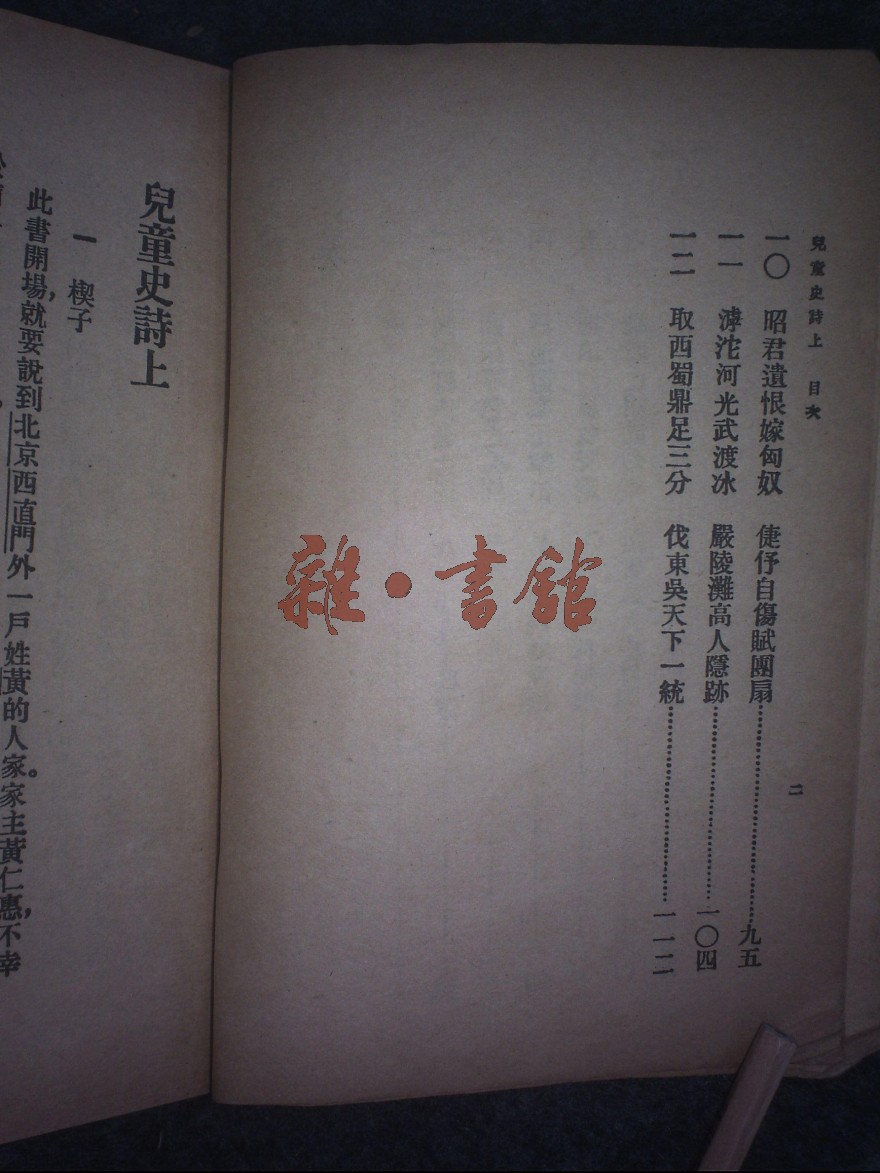 兒童史詩上 目次
一〇 昭君遺恨嫁匈奴 倢伃自傷賦團扇……九五
一一 滹沱河光武渡冰 嚴陵灘高人隱跡……一〇四
一二 取西蜀鼎足三分 伐東吳天下一統……一一二
二
雜·書館
兒童史詩上
一 楔子
此書開場，就要說到北京西直門外一戶姓黃的人家。家主黃仁惠，不幸